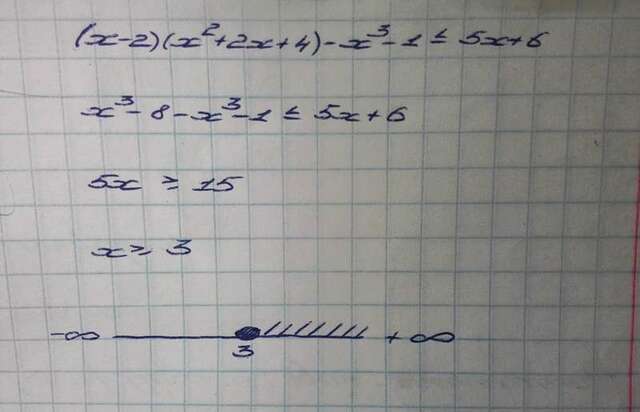 (x-2)(x²+2x+4)-x³-1≤5x+6
x³-8-x³-1≤5x+6
5x≥15
x≥3
-∞ +∞
3